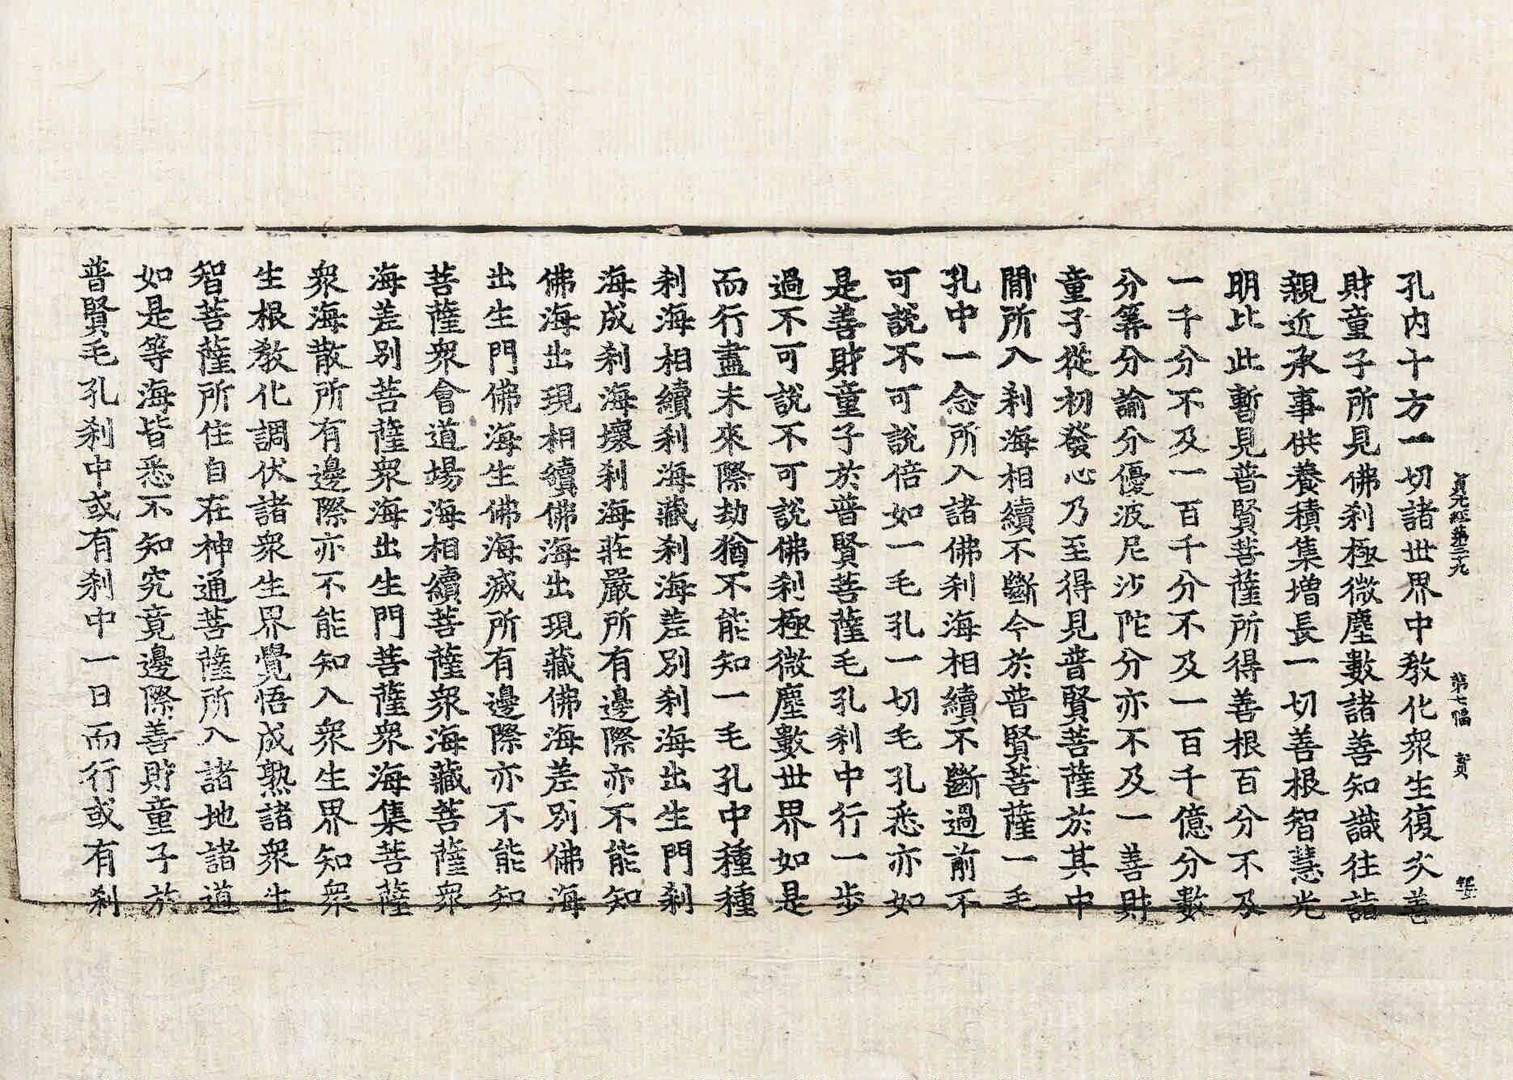 貞元經第三十九 第七幅 賢
孔內十方一切諸世界中敎化衆生復次善
財童子所見佛刹極微塵數諸善知識往詣
親近承事供養積集增長一切善根智慧光
明比此暫見普賢菩薩所得善根百分不及
一千分不及一百千分不及一百千億分數
分筭分諭分優波尼沙陀分亦不及一善財
童子從初發心乃至得見普賢菩薩於其中
間所入刹海相續不斷今於普賢菩薩一毛
孔中一念所入諸佛刹海相續不斷過前不
可說不可說倍如一毛孔一切毛孔悉亦如
是善財童子於普賢菩薩毛孔刹中行一步
過不可說不可說佛刹極微塵數世界如是
而行盡未來際劫猶不能知一毛孔中種種
刹海相續刹海藏刹海差別刹海出生門刹
海成刹海壞刹海莊嚴所有邊際亦不能知
佛海出現相續佛海出現藏佛海差別佛海
出生門佛海生佛海滅所有邊際亦不能知
菩薩衆會道場海相續菩薩衆海藏菩薩衆
海差別菩薩衆海出生門菩薩衆海集菩薩
衆海散所有邊際亦不能知入衆生界知衆
生根敎化調伏諸衆生界覺悟成熟諸衆生
智菩薩所住自在神通菩薩所入諸地諸道
如是等海皆悉不知究竟邊際善財童子於
普賢毛孔刹中或有刹中一日而行或有刹